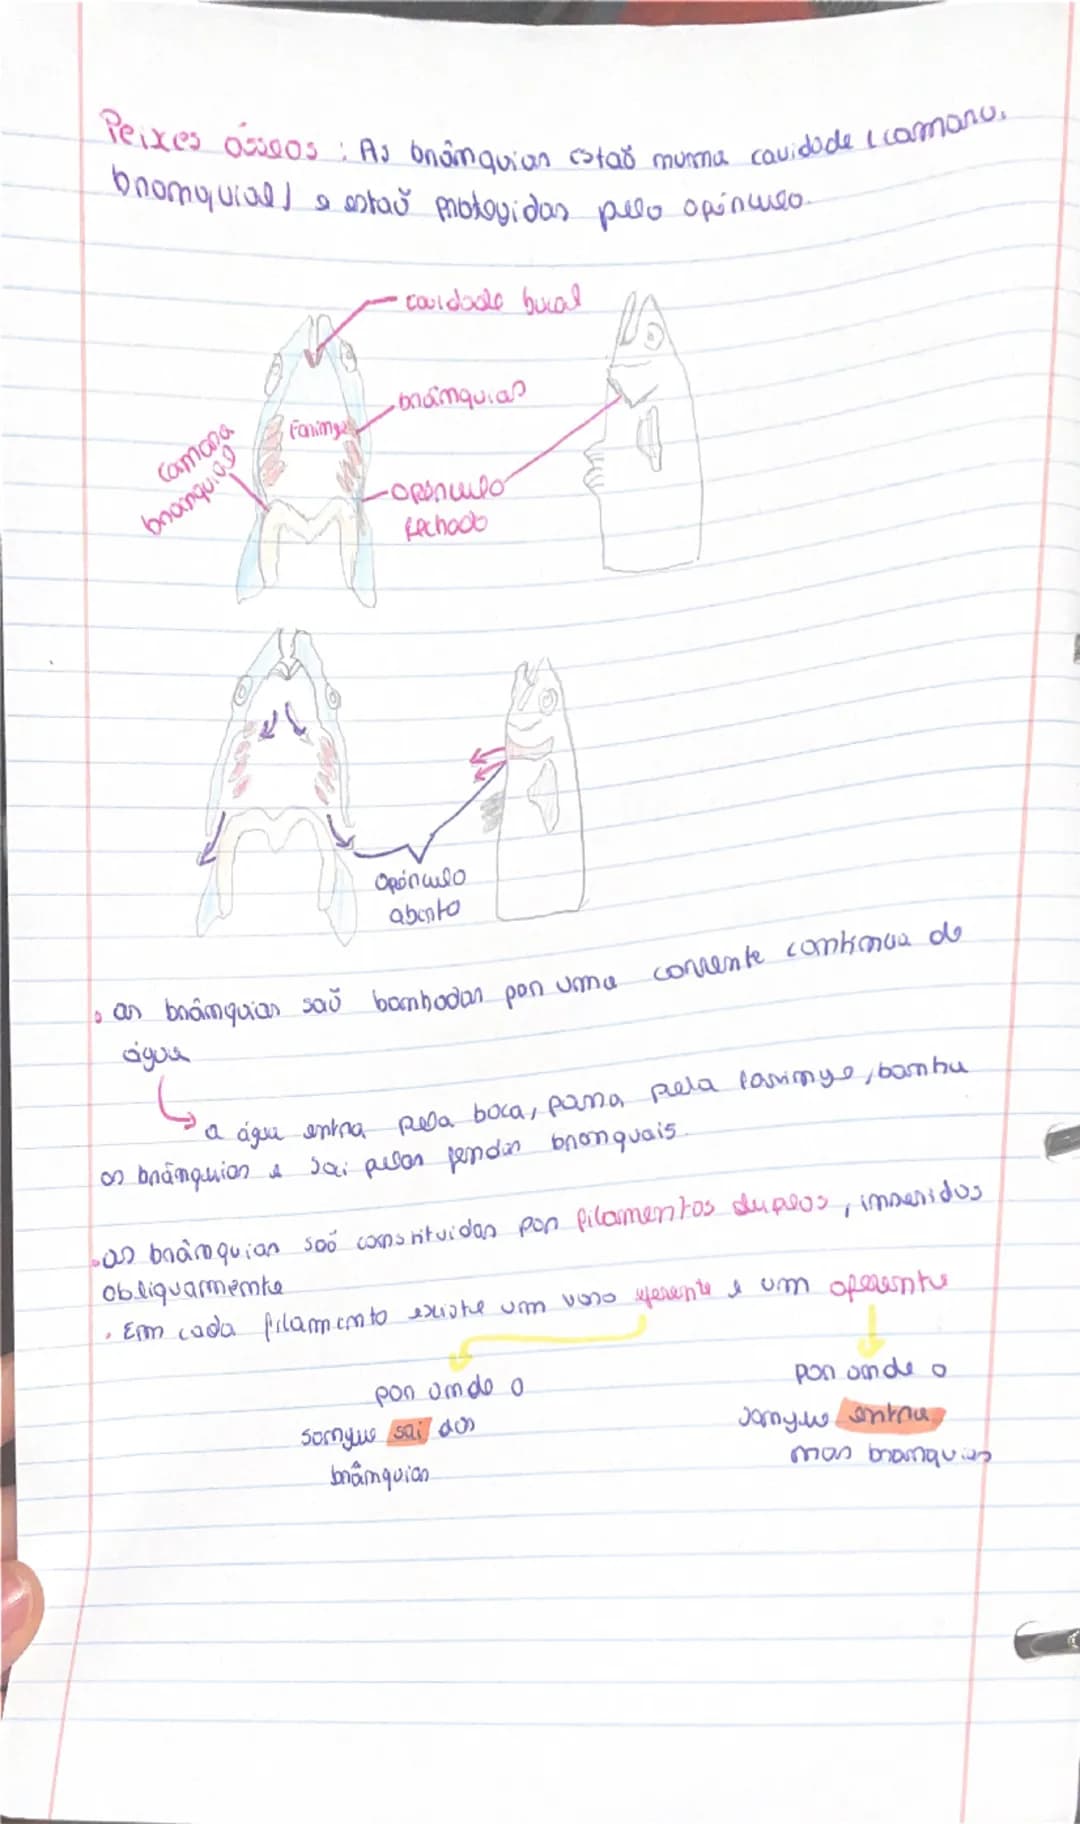 Peixes ósseos : As brânquias estão numa cavidade (camara
branquial) e estão protegidas pelo opérculo.
cavidade bucal
brânquias
Faringe
Camara
branquias
opérculo
fechado
Opérculo
aberto
• as brânquias são banhadas por uma corrente contínua de
água
a água entra pela boca, passa pela faringe, banha
as brânquias e sai pelas fendas branquais.
• as brânquias são constituidas por filamentos duplos, inseridos
obliquarmente
• Em cada filamento existe um vaso eferente e um aferente
por onde o
sangue sai das
brânquias
por onde o
sangue entra
nas branquias